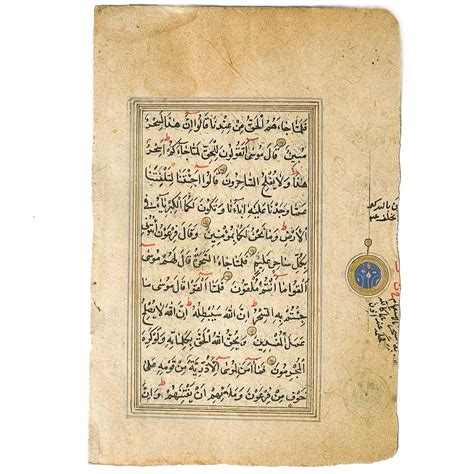 فَلَمَّا جَاءَهُمُ الْحَقُّ مِنْ عِنْدِنَا قَالُوا إِنَّ هَذَا لَسِحْرٌ
مُبِينٌ قَالَ مُوسَى أَتَقُولُونَ لِلْحَقِّ لَمَّا جَاءَكُمْ أَسِحْرٌ
هَذَا وَلَا يُفْلِحُ السَّاحِرُونَ قَالُوا أَجِئْتَنَا لِتَلْفِتَنَا
عَمَّا وَجَدْنَا عَلَيْهِ آبَاءَنَا وَتَكُونَ لَكُمَا الْكِبْرِيَاءُ فِي
الْأَرْضِ وَمَا نَحْنُ لَكُمَا بِمُؤْمِنِينَ وَقَالَ فِرْعَوْنُ ائْتُونِي
بِكُلِّ سَاحِرٍ عَلِيمٍ فَلَمَّا جَاءَ السَّحَرَةُ قَالَ لَهُمْ مُوسَى
أَلْقُوا مَا أَنْتُمْ مُلْقُونَ فَلَمَّا أَلْقَوْا قَالَ مُوسَى مَا
جِئْتُمْ بِهِ السِّحْرُ إِنَّ اللَّهَ سَيُبْطِلُهُ إِنَّ اللَّهَ لَا يُصْلِحُ
عَمَلَ الْمُفْسِدِينَ وَيُحِقُّ اللَّهُ الْحَقَّ بِكَلِمَاتِهِ وَلَوْ كَرِهَ
الْمُجْرِمُونَ فَمَا آمَنَ لِمُوسَى إِلَّا ذُرِّيَّةٌ مِنْ قَوْمِهِ عَلَى
خَوْفٍ مِنْ فِرْعَوْنَ وَمَلَئِهِمْ أَنْ يَفْتِنَهُمْ وَإِنَّ